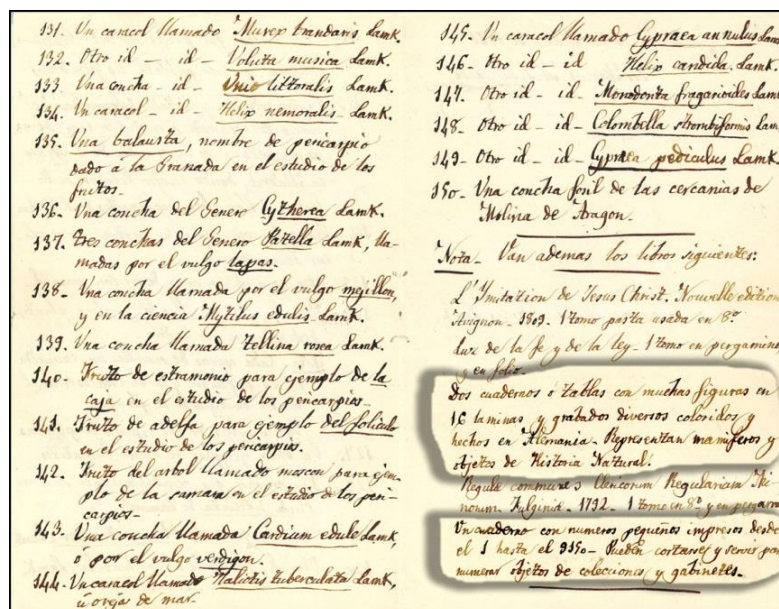 131. Un caracol llamado Murex brandaris Lamk.
132. Otro id - id - Voluta musica Lamk.
133. Una concha - id - Unio littoralis Lamk.
134. Un caracol - id - Helix nemoralis Lamk.
135. Una balausta, nombre de pericarpio
dado á la Granada en el estudio de los
frutos.
136. Una concha del Genero Cytherea Lamk.
137. Tres conchas del Genero Patella Lamk, lla-
madas por el vulgo lapas.
138. Una concha llamada por el vulgo mejillon,
y en la ciencia Mytilus edulis Lamk.
139. Una concha llamada Tellina rosea Lamk.
140. Fruto de estramonio para ejemplo de la
caja en el estudio de los pericarpios.
141. Fruto de adelfa para ejemplo del foliculo
en el estudio de los pericarpios.
142. Fruto del arbol llamado moscon para ejem-
plo de la samara en el estudio de los peri-
carpios.
143. Una concha llamada Cardium edule Lamk,
ó por el vulgo verdigon.
144. Un caracol llamado Haliotis tuberculata Lamk,
ú orejas de mar.
145. Un caracol llamado Cypraea annulus Lam
146. Otro id - id Helix candida Lamk.
147. Otro id - id - Monodonta fragarioides Lam
148. Otro id - id - Colombella strombiformis Lam
149. Otro id - id - Cypraea pediculus Lamk.
150. Una concha fosil de las cercanias de
Molina de Aragon.
Nota. Van ademas los libros siguientes:
L'Ymitation de Jesus Christ. Nouvelle edition
Avignon. 1809. 1 tomo pasta usada en 8º
Luz de la fe y de la ley. 1 tomo en pergamino
y en folio.
Dos cuadernos ó tablas con muchas figuras en
16 laminas y grabados diversos coloridos y
hechos en Alemania. Representan mamiferos y
objetos de Historia Natural.
Regulæ communes Regularium Mi-
norum. 1792. 1 tomo en 8º y en pergam
Un cuaderno con numeros pequeños impresos desde
el 1 hasta el 9150. Pueden cortarse y servir para
numerar objetos de colecciones y gabinetes.